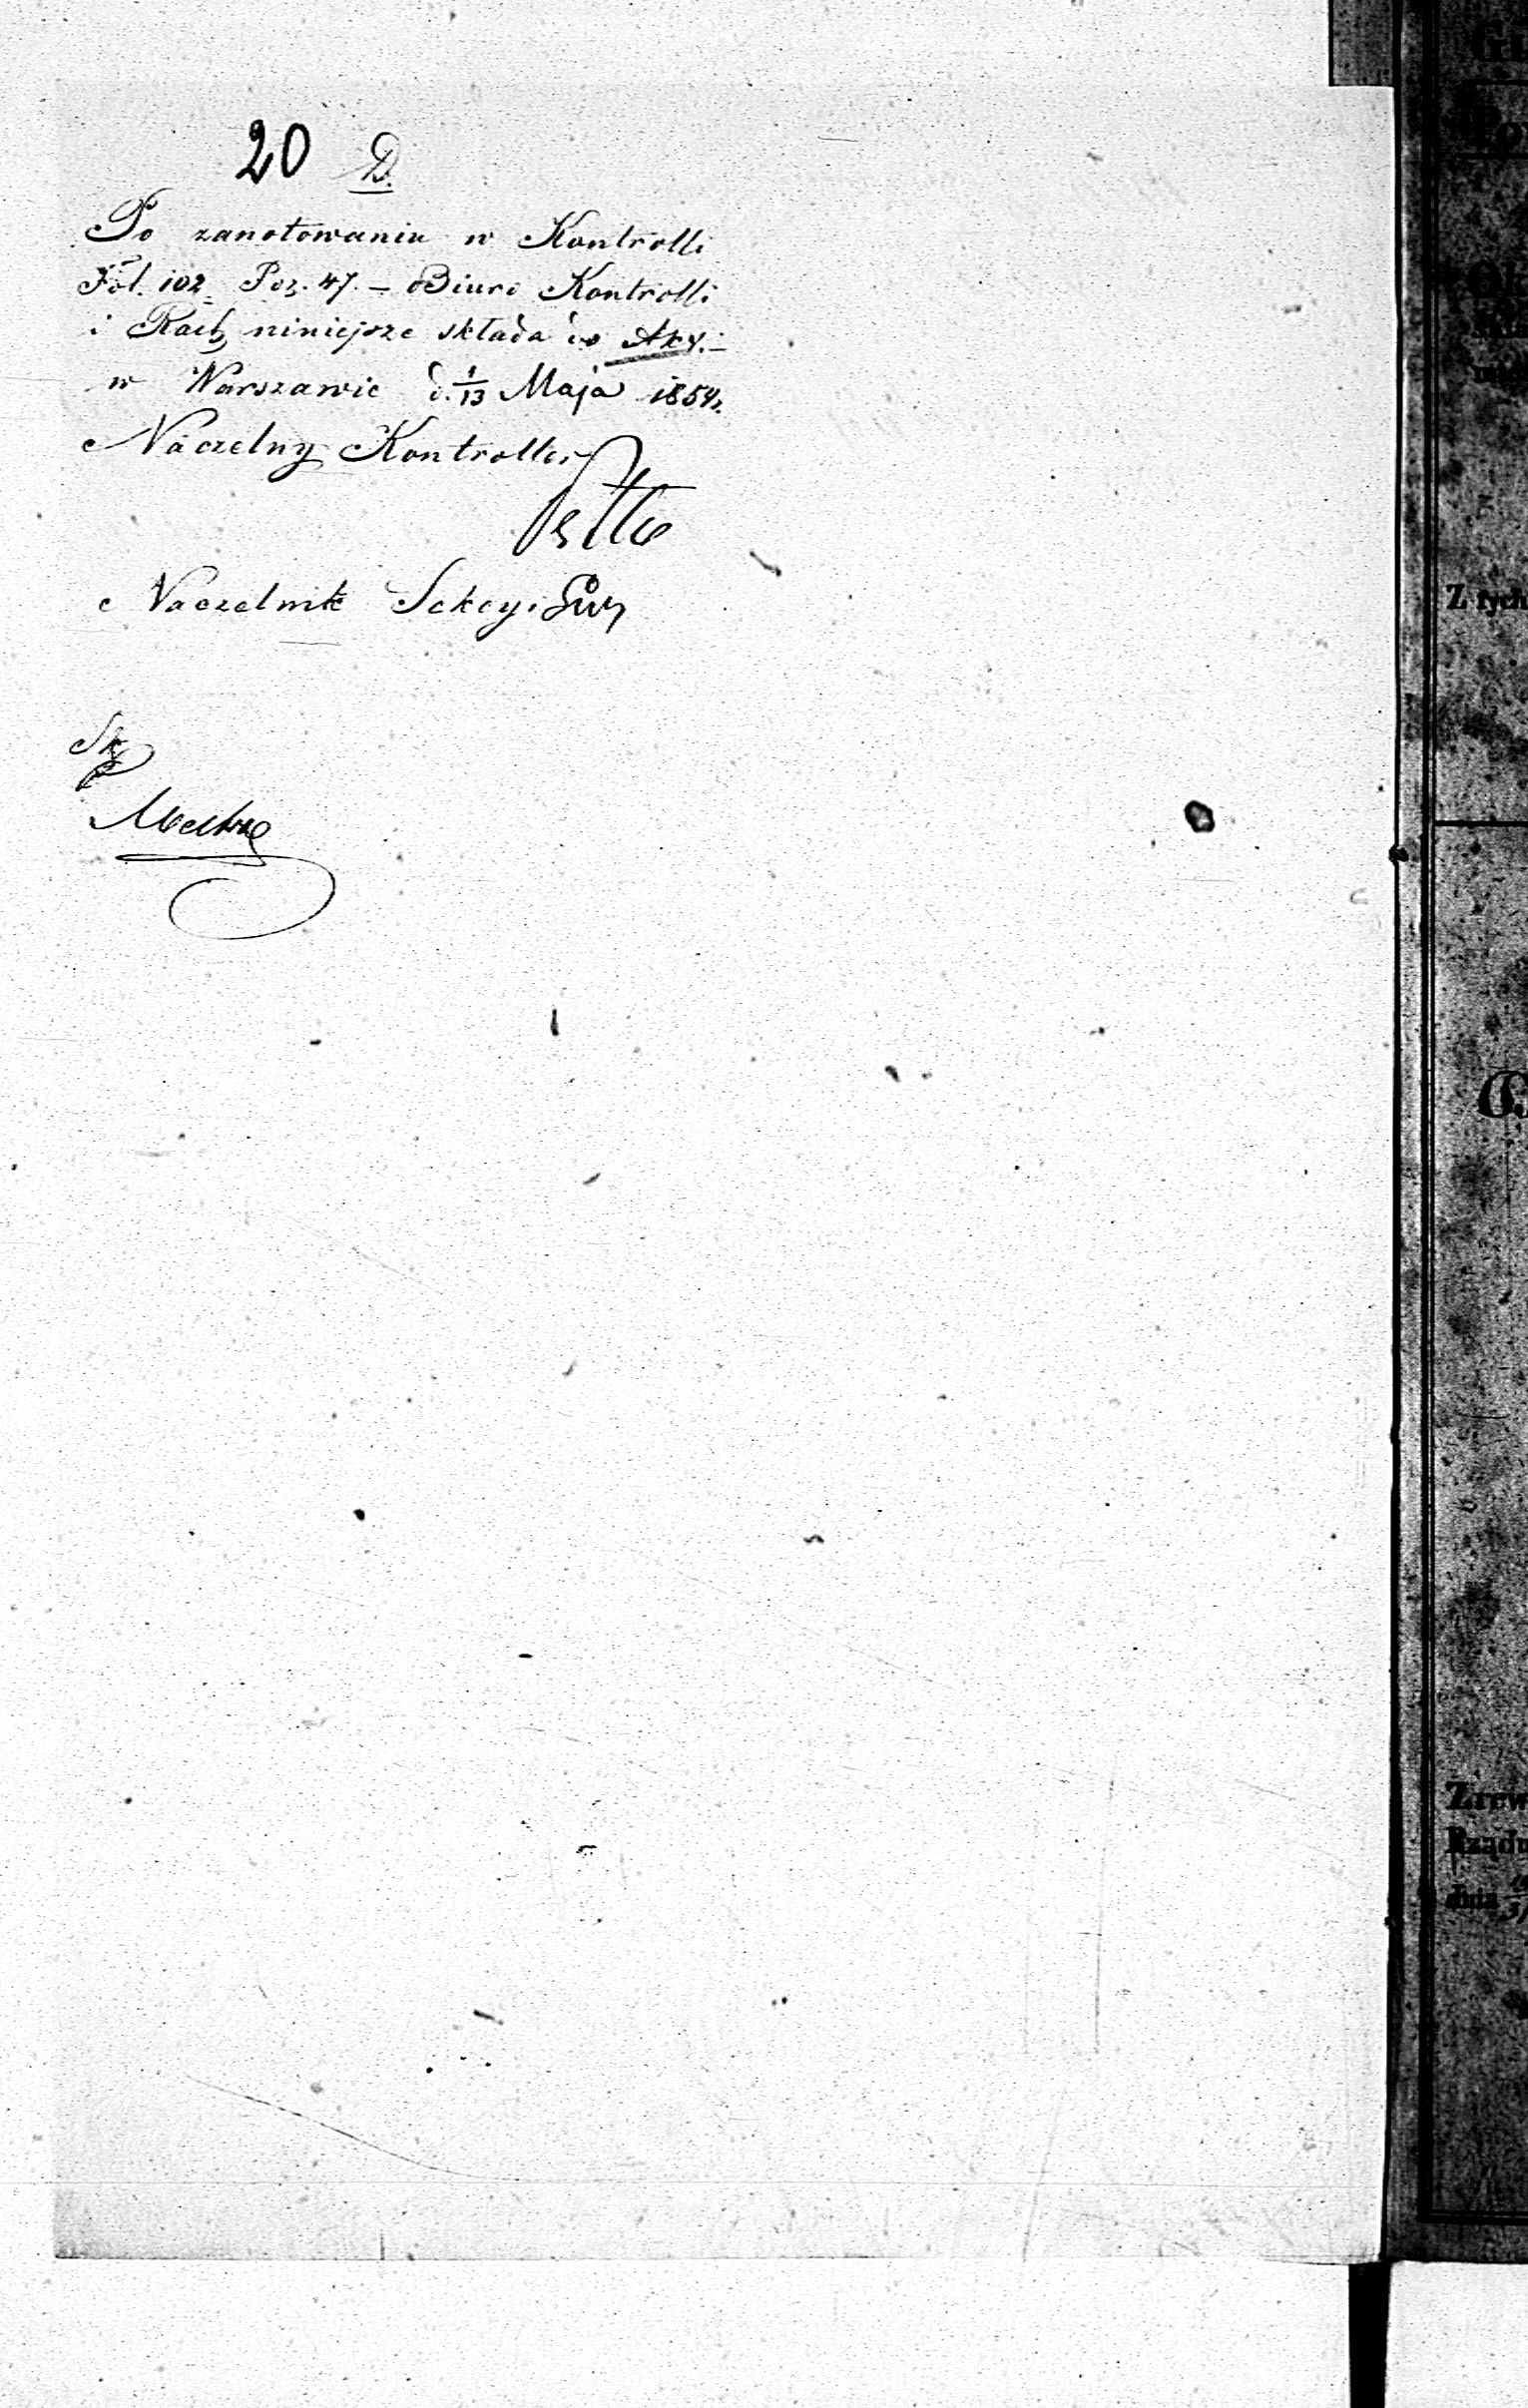 20 D.
Po zanotowaniu w Kontrolli
Fol. 102 Poz. 47. – Biuro Kontrolli
i Rach. niniejsze składa do Akt. –
w Warszawie d. 1/13 Maja 1854 r.
Naczelny Kontroller
Naczelnik Sekcyi
Z tych
Zrew
Rządu
dnia